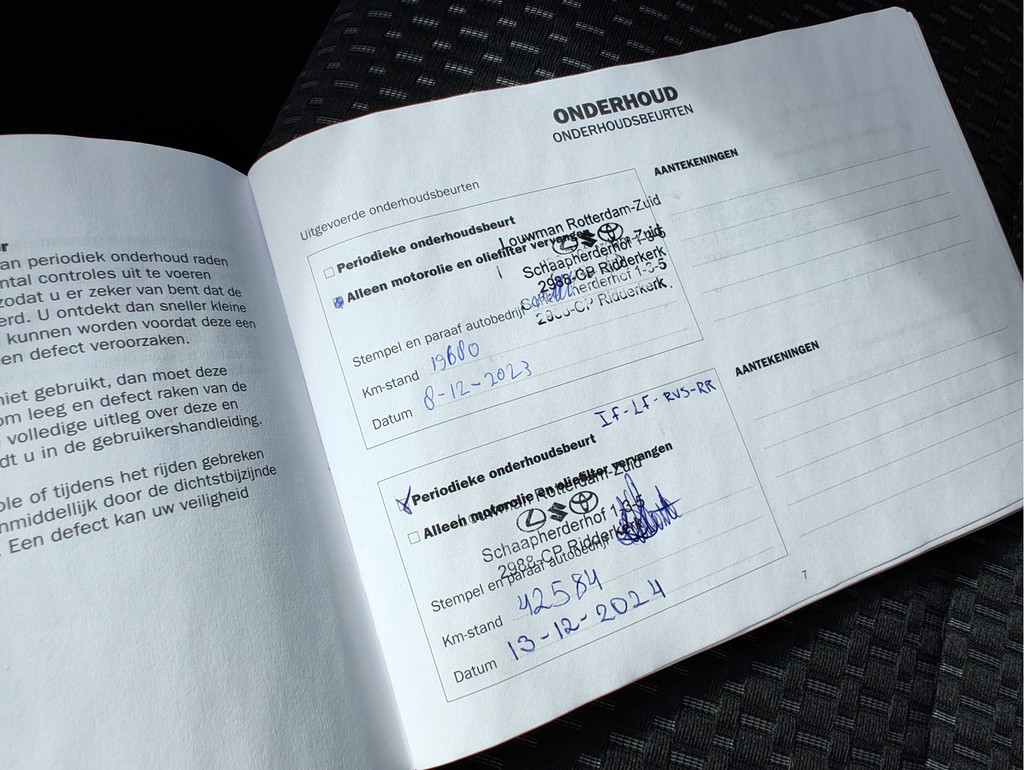 r
an periodiek onderhoud raden
ntal controles uit te voeren
zodat u er zeker van bent dat de
erd. U ontdekt dan sneller kleine
kunnen worden voordat deze een
en defect veroorzaken.
niet gebruikt, dan moet deze
om leeg en defect raken van de
volledige uitleg over deze en
dt u in de gebruikershandleiding.
ole of tijdens het rijden gebreken
nmiddellijk door de dichtstbijzijnde
. Een defect kan uw veiligheid
ONDERHOUD
ONDERHOUDSBEURTEN
Uitgevoerde onderhoudsbeurten
AANTEKENINGEN
Periodieke onderhoudsbeurt
Alleen motorolie en oliefilter vervangen
Louwman Rotterdam-Zuid
Schaapherderhof 1-3-5
2988-CP Ridderkerk
Stempel en paraaf autobedrijf
Zuid
Schaapherderhof 1-3-5
2988-CP Ridderkerk.
Km-stand 19680
Datum 8-12-2023
AANTEKENINGEN
If-Lf-RVS-RR
Periodieke onderhoudsbeurt
Alleen motorolie en oliefilter vervangen
Louwman Rotterdam-Zuid
Schaapherderhof 1-3-5
2988-CP Ridderkerk
Stempel en paraaf autobedrijf
Km-stand 42584
Datum 13-12-2024
7